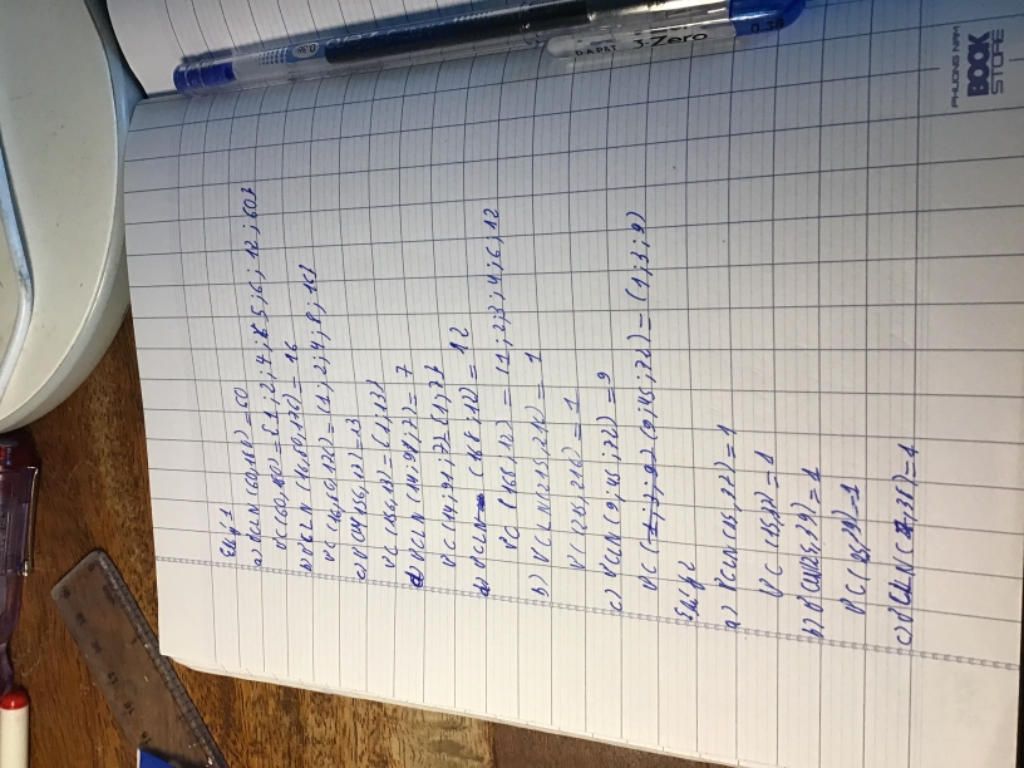 a) ƯCLN (60,180) = 60
ƯC (60,180) = {1; 2; 4; 5; 6; 12; 60}
b) ƯCLN (16,80,176) = 16
ƯC (16,80,176) = {1; 2; 4; 8; 16}
c) ƯCLN (56,13) = 13
ƯC (56,13) = {1; 13}
d) ƯCLN (14; 91; 77) = 7
ƯC (14; 91; 77) = {1; 7}
a) ƯCLN (168,12) = 12
ƯC (168,12) = (1; 2; 3; 4; 6; 12
b) ƯCLN (25, 216) = 1
ƯC (25, 216) = 1
c) ƯCLN (9; 45; 72) = 9
ƯC (9; 45; 72) = (1; 3; 9)
a) ƯCLN (15, 22) = 1
ƯC (15, 22) = 1
b) = 1
ƯC = 1
c) ƯCLN = 1
0.38
DAPAT
3-Zero
0.38
PHUONG NAM
BOOK
STORE